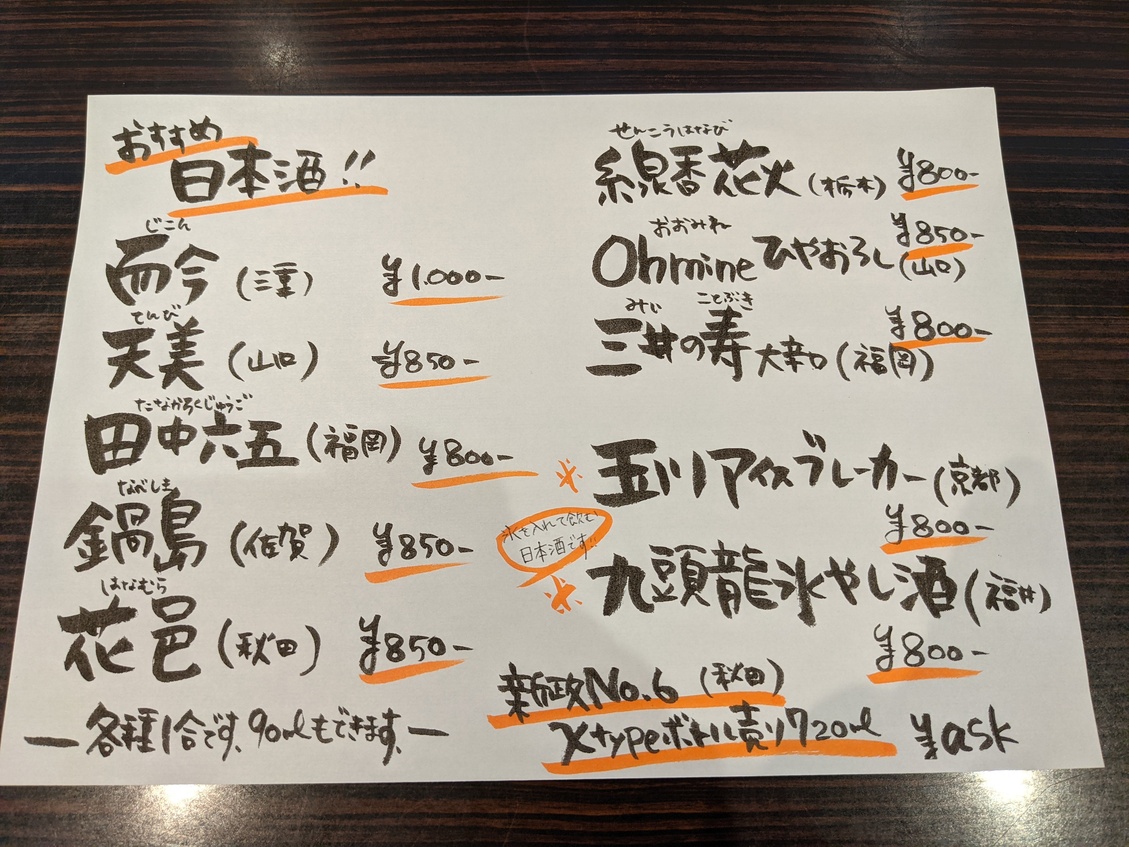 おすすめ
日本酒!!
じこん
而今 (三重) ¥1.000-
てんび
天美 (山口) ¥850-
たなかろくじゅうご
田中六五 (福岡) ¥800-
なべしま
鍋島 (佐賀) ¥850-
はなむら
花邑 (秋田) ¥850-
ー各種1合です、90mlもできます。ー
せんこうはなび
線香花火 (栃木) ¥800-
おおみね
Ohmine ひやおろし (山口) ¥850-
みい ことぶき
三井の寿 大辛口 (福岡) ¥800-
※ 玉川アイスブレーカー (京都)
¥800-
氷を入れて飲む
日本酒です!!
※ 九頭龍氷やし酒 (福井)
¥800-
新政No.6 (秋田)
Xtypeボトル売り720ml ¥ask